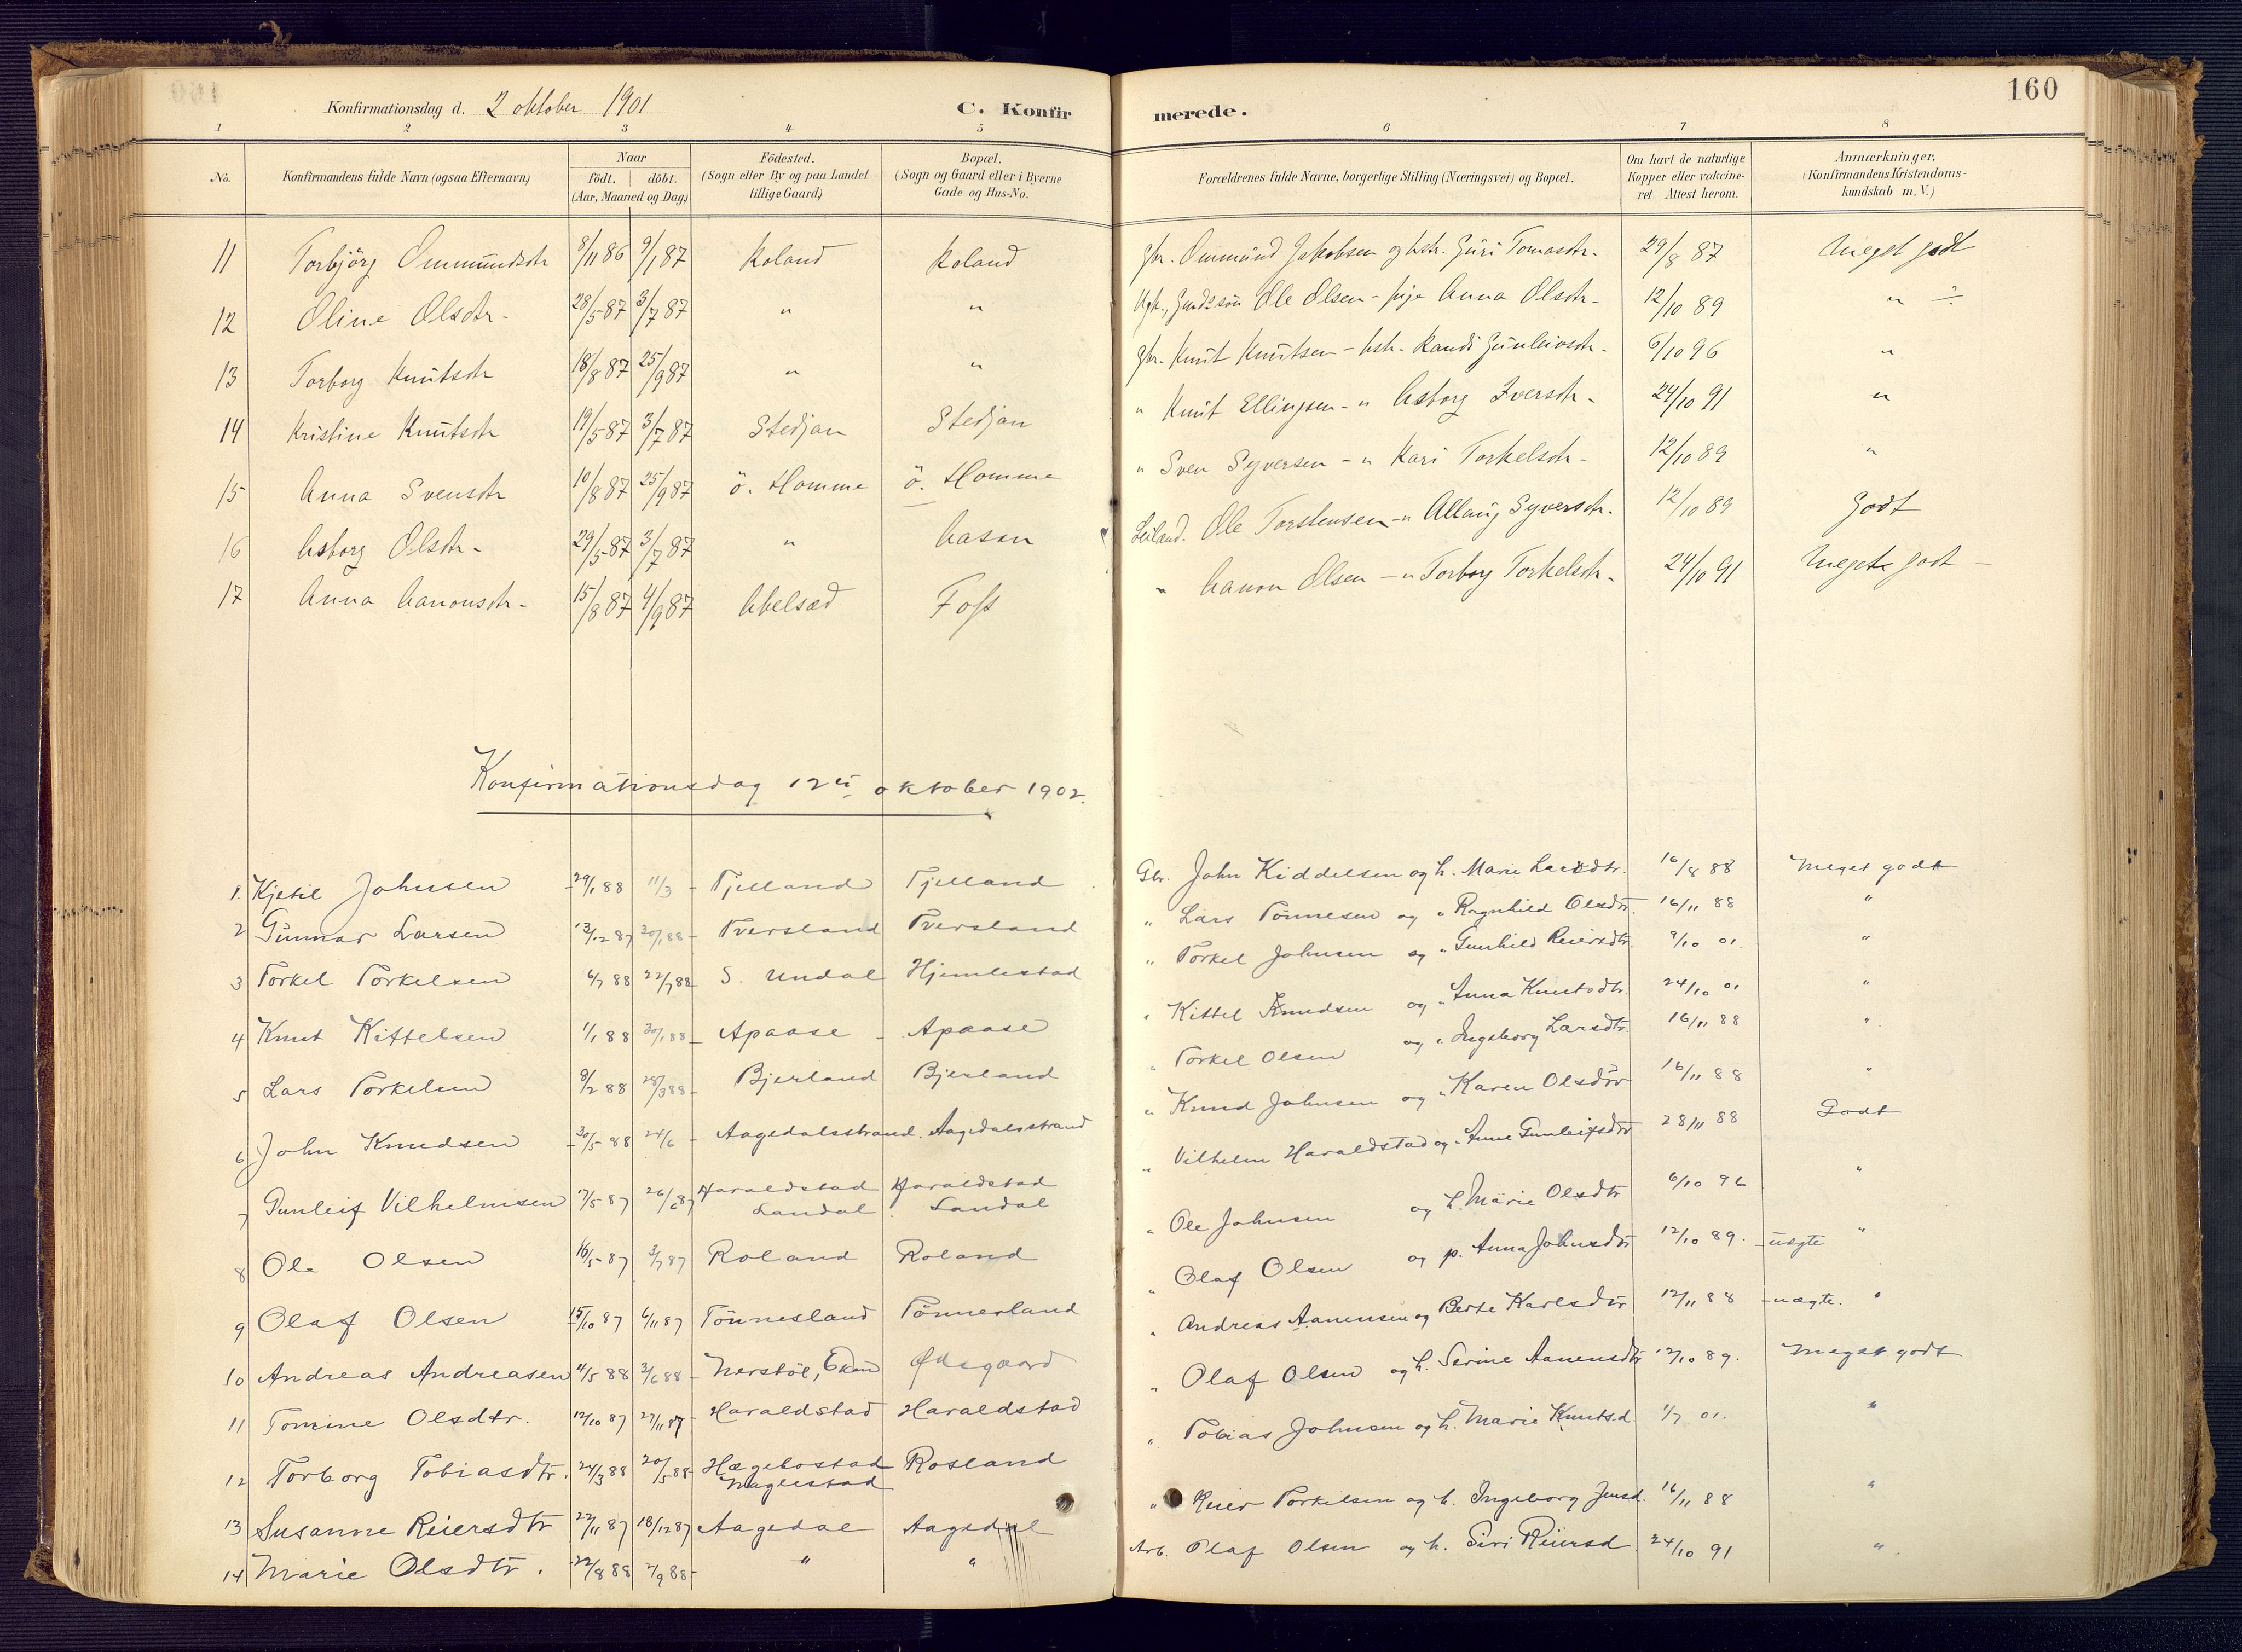 160
Konfirmationsdag d. 2 oktober 1901 C. Konfirmerede.
1 2 3 4 5 6 7 8
No. Konfirmandens fulde Navn (ogsaa Efternavn) Naar födt. döbt. (Aar, Maaned og Dag.) Födested. (Sogn eller By og paa Landet tillige Gaard) Bopæl. (Sogn og Gaard eller i Byerne Gade og Hus-No. Forældrenes fulde Navne, borgerlige Stilling (Næringsvei) og Bopæl. Om havt de naturlige Kopper eller vakcineret. Attest herom. Anmærkninger. (Konfirmandens Kristendomskundskab m. V.)
11 Torbjörg Ommundsdtr 8/11 86 9/1 87 Roland Roland Gbr. Ommund Jakobsen og hstr. Guri Tomasdtr. 29/8 87 Meget godt
12 Oline Olsdtr. 28/5 87 3/7 87 " " Ole Olsen - pige Anna Olsdtr. 12/10 89 "
13 Torborg Knutsdtr 18/8 87 25/9 87 " " Gbr. Knut Knutsen - hstr. Randi Gunleivsdtr. 6/10 96 "
14 Kristine Knutsdtr 19/5 87 3/7 87 Stedjan Stedjan " Knut Ellingsen - " Asborg Iversdtr. 24/10 91 "
15 Anna Svensdtr 10/8 87 25/9 87 ö. Homme ö. Homme " Sven Syversen - " Kari Torkelsdtr. 12/10 89 "
16 Asborg Olsdtr. 29/5 87 3/7 87 " Aasen Leiland. Ole Torstensen - " Allaug Syversdtr. 12/10 89 Godt
17 Anna Aanonsdtr. 15/8 87 4/9 87 Abelsæd Foss " Aanon Olsen - " Torborg Torkelsdtr. 24/10 91 Meget godt
Konfirmationsdag 12te oktober 1902.
1. Kjetil Johnsen 29/1 88 11/3 - Tjelland Tjelland Gbr. John Kiddelsen og h. Marie Larsdtr. 16/8 88 Meget godt
2 Gunnar Larsen 13/12 87 30/1 88 - Tversland Tversland " Lars Tönnesen og " Ragnhild Olsdtr. 16/11 88 "
3 Torkel Torkelsen 6/7 88 22/7 88 S. Undal Hjemlestad " Torkel Johnsen og " Gunhild Reiersdtr. 9/10 01. "
4 Knut Kittelsen 1/1 88 30/1 88 - Apaase - Apaase " Kittel Knudsen og " Anna Knutsdtr. 24/10 01 "
5 Lars Torkelsen 9/2 88 28/3 88 Bjerland Bjerland " Torkel Olsen og " Ingeborg Larsdtr. 16/11 88 "
6 John Knudsen 30/5 88 24/6 - Aagedalsstrand. Aagedalsstrand " Knud Johnsen og " Karen Olsdtr 16/11 88 "
7 Gunleif Vilhelmsen 17/5 87 26/6 87 Haraldstad Landal Haraldstad Landal " Vilhelm Haraldstad og " Anne Gunleifsdtr 28/11 88 Godt
8 Ole Olsen 16/5 87 3/7 87 Roland Roland " Ole Johnsen og h. Marie Olsdtr 6/10 96 "
9 Olaf Olsen 15/10 87 6/11 87 Tönnesland Tönnesland " Olaf Olsen og p. Anna Johnsdtr 12/10 89. - uægte "
10 Andreas Andreasen 4/5 88 3/6 88 - Nerstöl, Eken Ödegaard " Andreas Aanensen og Berte Karlsdtr 12/11 88 - uægte. "
11 Tomine Olsdtr. 12/10 87 27/11 87 - Haraldstad Haraldstad " Olaf Olsen og h. Serine Aanensdtr 12/10 89. Meget godt
12 Torborg Tobiasdtr. 24/3 88 20/5 88 Hægebostad Naglestad Rosland " Tobias Johnsen og h. Marie Knutsd. 1/7 01. "
13 Susanne Reiersdtr 22/11 87 18/12 87 Aagedal Aagedal " Reier Torkelsen og h. Ingeborg Jensd. 16/11 88 "
14 Marie Olsdtr. 22/8 88 2/9 88 - " " Arb. Olaf Olsen og h. Siri Reiersd 24/10 91 "